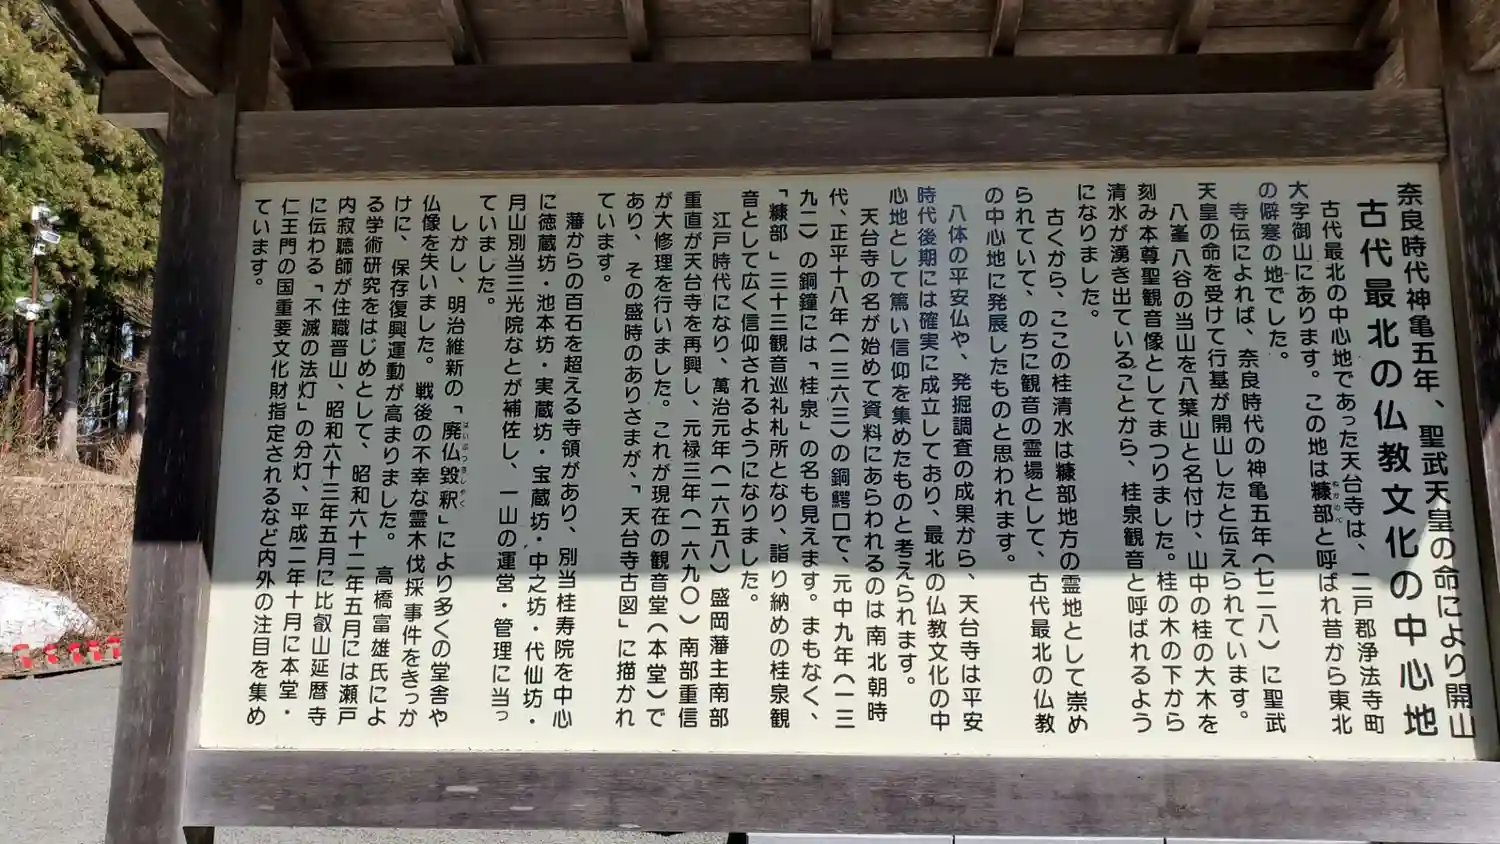 奈良時代神亀五年、聖武天皇の命により開山
古代最北の仏教文化の中心地
古代最北の中心地であった天台寺は、二戸郡浄法寺町
大字御山にあります。この地は糠部と呼ばれ昔から東北
ぬかのべ
の僻寒の地でした。
寺伝によれば、奈良時代の神亀五年(七二八)に聖武
天皇の命を受けて行基が開山したと伝えられています。
八峯八谷の当山を八葉山と名付け、山中の桂の大木を
刻み本尊聖観音像としてまつりました。桂の木の下から
清水が湧き出ていることから、桂泉観音と呼ばれるよう
になりました。
古くから、ここの桂清水は糠部地方の霊地として崇め
られていて、のちに観音の霊場として、古代最北の仏教
の中心地に発展したものと思われます。
八体の平安仏や、発掘調査の成果から、天台寺は平安
時代後期には確実に成立しており、最北の仏教文化の中
心地として篤い信仰を集めたものと考えられます。
天台寺の名が始めて資料にあらわれるのは南北朝時
代、正平十八年(一三六三)の銅鰐口で、元中九年(一三
九二)の銅鐘には「桂泉」の名も見えます。まもなく、
「糠部」三十三観音巡礼札所となり、詣り納めの桂泉観
音として広く信仰されるようになりました。
江戸時代になり、萬治元年(一六五八)盛岡藩主南部
重直が天台寺を再興し、元禄三年(一六九〇)南部重信
が大修理を行いました。これが現在の観音堂(本堂)で
あり、その盛時のありさまが、「天台寺古図」に描かれ
ています。
藩からの百石を超える寺領があり、別当桂寿院を中心
に徳蔵坊・池本坊・実蔵坊・宝蔵坊・中之坊・代仙坊・
月山別当三光院などが補佐し、一山の運営・管理に当っ
ていました。
しかし、明治維新の「廃仏毀釈」により多くの堂舎や
はいぶつきしゃく
仏像を失いました。戦後の不幸な霊木伐採事件をきっか
けに、保存復興運動が高まりました。高橋富雄氏によ
る学術研究をはじめとして、昭和六十二年五月には瀬戸
内寂聴師が住職晋山、昭和六十三年五月に比叡山延暦寺
に伝わる「不滅の法灯」の分灯、平成二年十月に本堂・
仁王門の国重要文化財指定されるなど内外の注目を集め
ています。